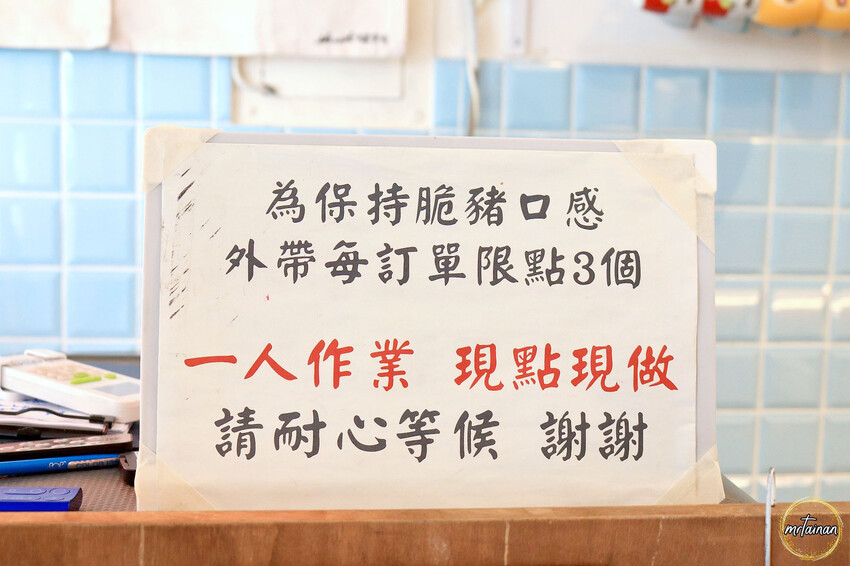 為保持脆豬口感
外帶每訂單限點3個
一人作業 現點現做
請耐心等候 謝謝
mrtainan